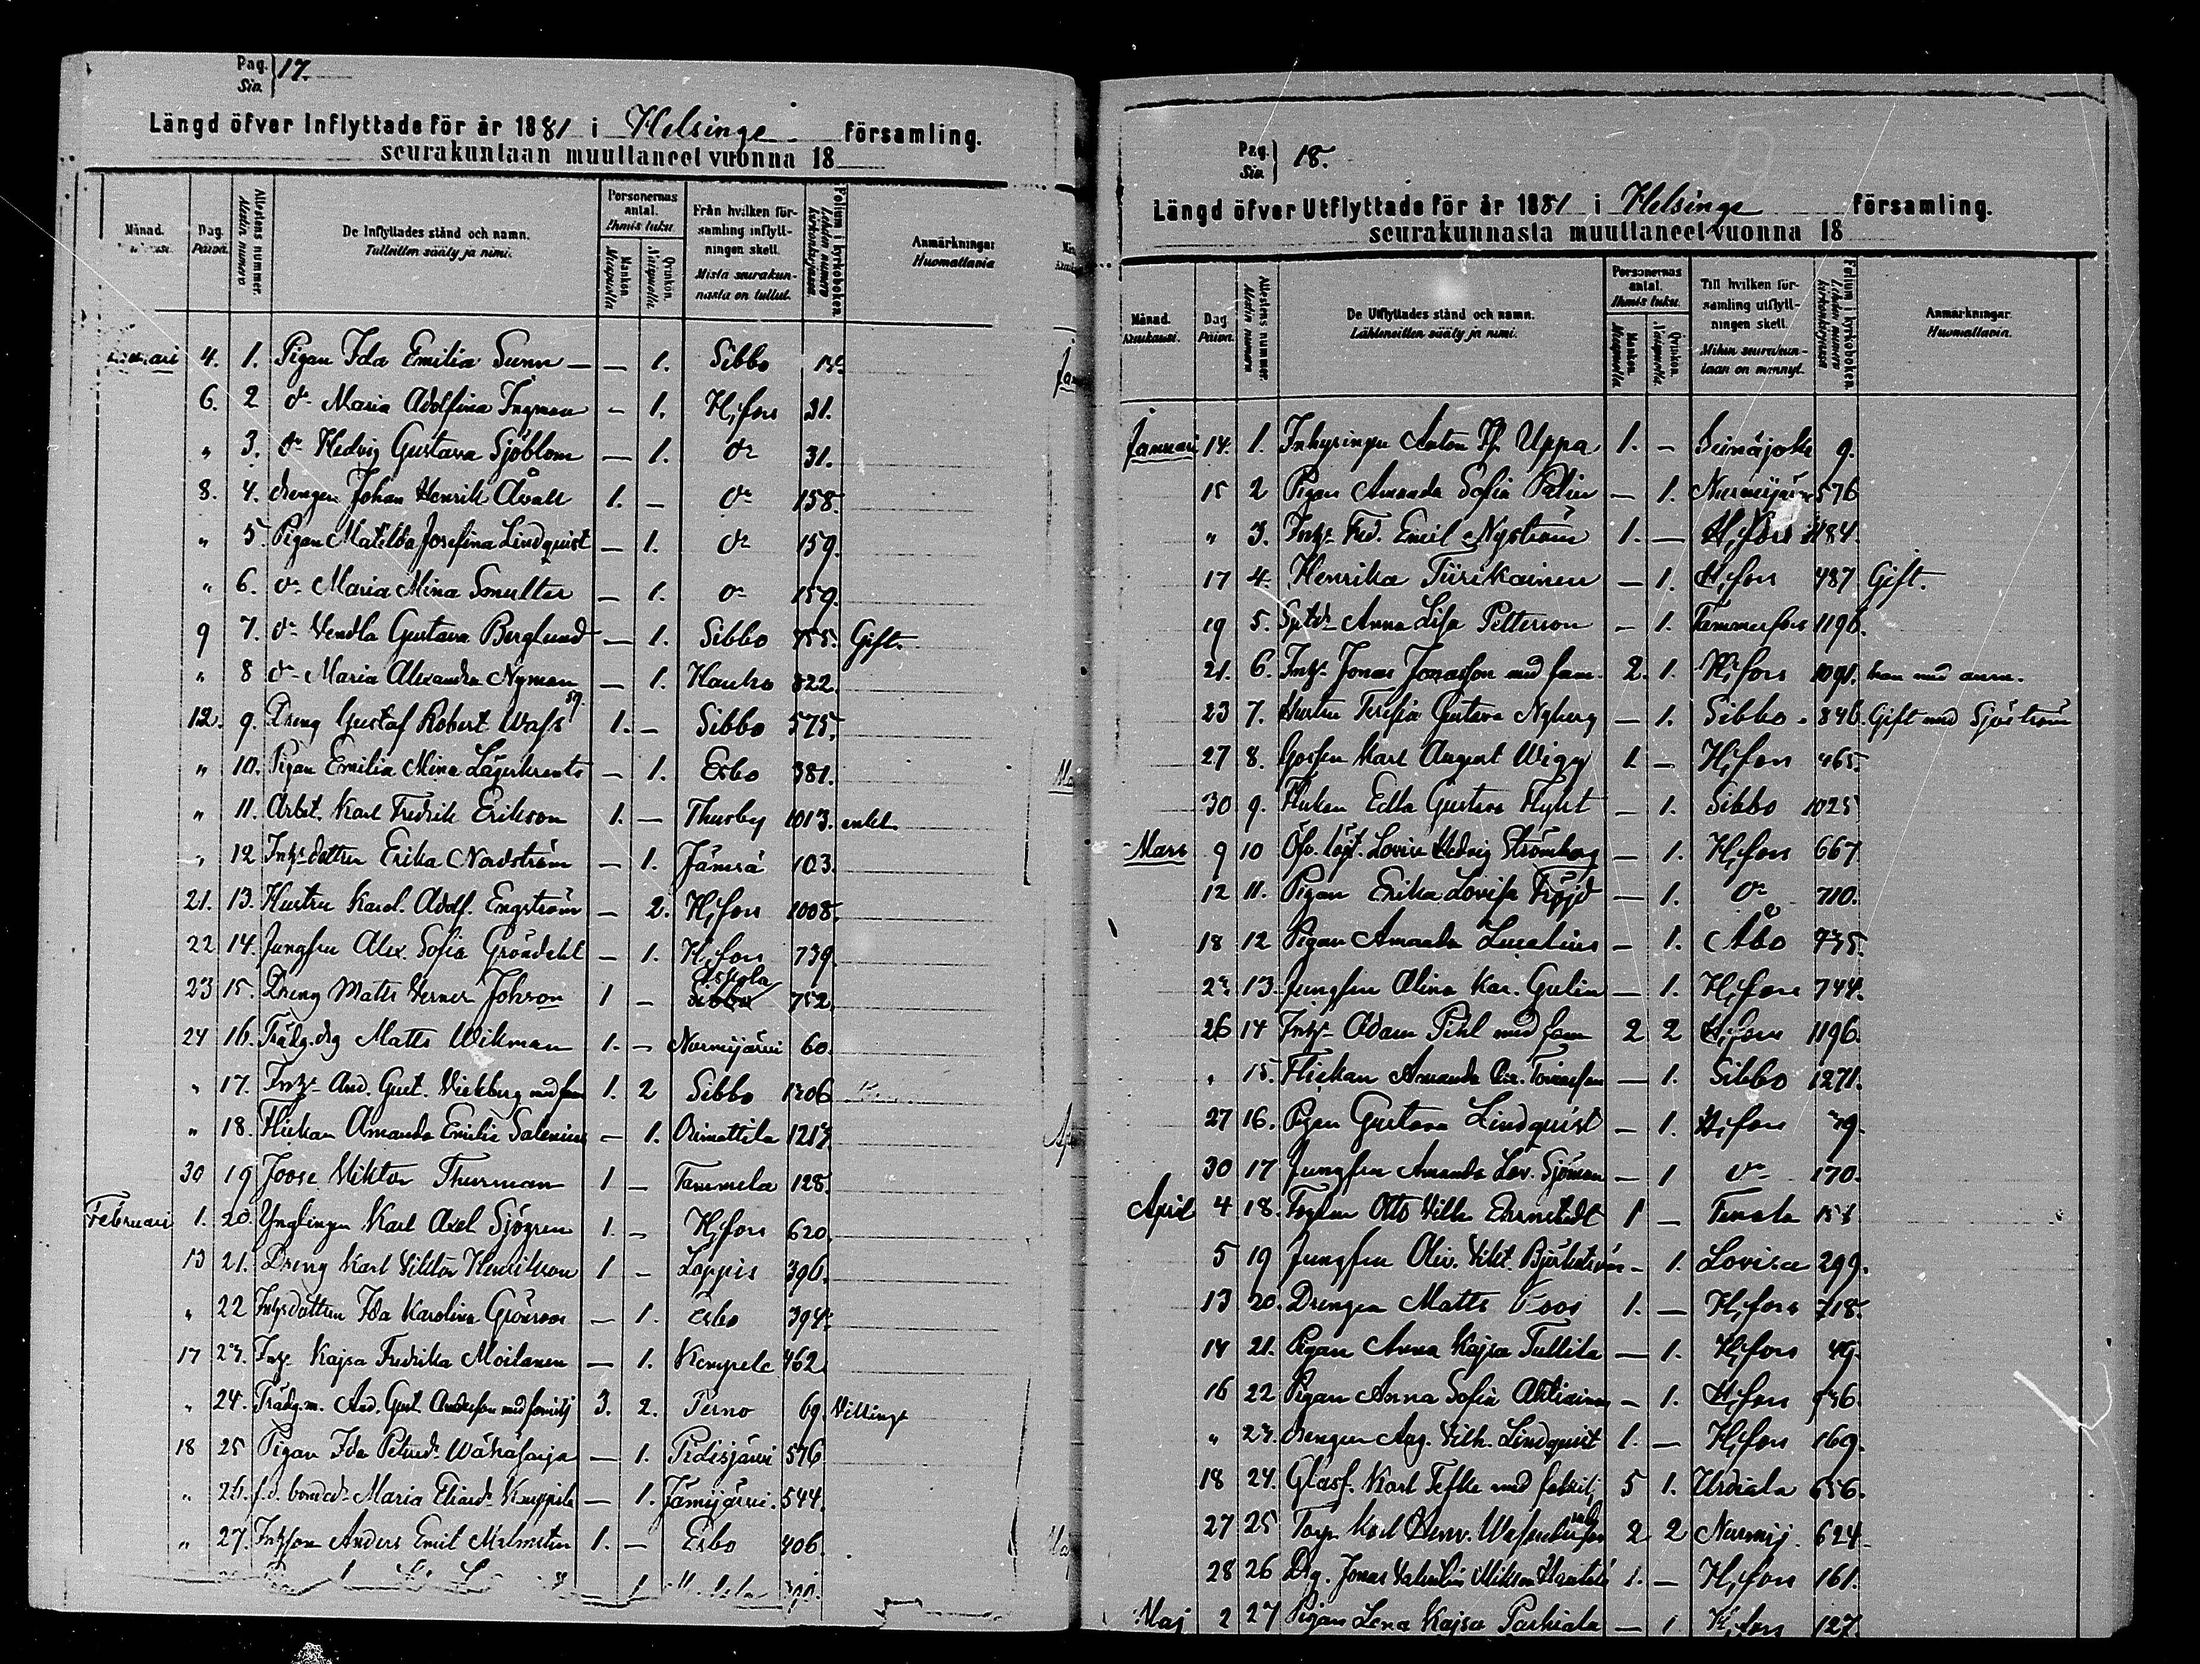 Pag. 17.
Siv.
Längd öfver Inflyttade för år 1881 i Helsinge församling.
seurakuntaan muuttaneet vuonna 18
Månad. Dag. Päivä. Attestens nummer. Atestin numero. De Inflyttades stånd och namn. Tulleitten sääty ja nimi. Personernas antal. Ihmis luku. Mankön. Miespuolta. Qvinkön. Naispuolta. Från hvilken församling inflyttningen skett. Mistä seurakunnasta on tullut. Folium i kyrkoboken. Lehden numero kirkonkirjassa. Anmärkningar. Huomattavia
Januari 4. 1. Pigan Ida Emilia Sunn — — 1. Sibbo
6. 2 do Maria Adolfina Ingman — 1. H,fors 31.
" 3. do Hedvig Gustava Sjöblom — 1. do 31.
8. 4. drengen Johan Henrik Åvall 1. — do 158.
" 5. Pigan Matilda Josefina Lindquist — 1. do 159.
" 6. do Maria Mina Smulter — 1. do 159.
9 7. do Vendla Gustava Berglund — 1. Sibbo 755. Gift.
" 8 do Maria Alexandra Nyman — 1. Hauho 822.
12. 9. Dreng Gustaf Robert 1. — Sibbo 575.
" 10. Pigan Emilia Mina Lägerkrants — 1. Esbo 381.
" 11. Arbet. Karl Fredrik Erikson 1. — Thusby 1013. enkl.
" 12 Inhs dottren Erika Nordström — 1. Jämsä 103.
21. 13. Hustru Karol. Adolf. Engström — 2. H,fors 1008.
22 14. Jungfru Alex. Sofia Gröndahl — 1. H,fors 739.
23 15. Dreng Matts Verner Johson 1 — Askola Sibbo 752.
24 16. Trädg.drg Matts Wikman 1. — Nurmijärvi 60.
" 17. Inhs And. Gust. Vickberg med fam 1. 2 Sibbo 1206
" 18. Flickan Amanda Emilia Salenius — 1. Orimattila 1217.
30 19 Joose Viktor Thurman 1 — Tammela 128.
Februari 1. 20. Ynglingen Karl Axel Sjögren 1. — H,fors 620.
13 21. Dreng Karl Viktor Henrikson 1 — Loppis 396.
" 22 Inhsdottren Ida Karolina Grönroos — 1. Esbo 394.
17 23. Inhs Kajsa Fredrika Moilanen — 1. Kempele 462
" 24. Trädg.m. And. Gust. Andersson med familj 3. 2. Perno 69. Villinge
18 25 Pigan Ida Petrud. — 1. Pidisjärvi 576
" 26. Maria — 1. Jämijärvi. 544.
" 27. Inhsson Anders Emil Malmsten 1. — Esbo 406.
Pag. 18.
Siv.
Längd öfver Utflyttade för år 1881 i Helsinge församling.
seurakunnasta muuttaneet vuonna 18
Månad. Kuukausi. Dag. Päivä. Attestens nummer. Atestin numero. De Utflyttades stånd och namn. Lähteneitten sääty ja nimi. Personernas antal. Ihmis luku. Mankön. Miespuolta. Qvinkön. Naispuolta. Till hvilken församling utflyttningen skett. Mihin seurakuntaan on mennyt. Folium i kyrkoboken. Lehden numero kirkonkirjassa. Anmärkningar. Huomattavia.
Januari 14. 1. Inhysingen Anton Uppa 1. — Seinäjoki 9.
15 2 Pigan Amanda Sofia Palin — 1. Nurmijärvi 576
" 3. Inhs Fred. Emil Nyström 1. — H,fors 484.
17 4. Henrika Tiirikainen — 1. H,fors 487 Gift.
19 5. Anna Lisa Petterson — 1. Tammerfors 1196.
21. 6. Inhs Jonas Jonasson med fam. 2. 1. H,fors 1091.
23 7. Hustru Teresia Gustava Nyberg — 1. Sibbo 846. Gift med Sjöström
27 8. Gossen Karl August Wigg 1. — H,fors 465.
30 9. Flickan Edla Gustava Flykt — 1. Sibbo 1025
Mars 9 10 Lovisa Hedvig Strömberg — 1. H,fors 667
12 11. Pigan Erika Lovisa Fröjd — 1. do 710.
18 12 Pigan Amanda Lucelius — 1. Åbo 735.
23 13. Jungfru Alina Kar. Gulin — 1. H,fors 744.
26 14 Inhs Adam Pihl med fam 2 2 H,fors 1196.
" 15. Flickan Amanda — 1. Sibbo 1271.
27 16. Pigan Gustava Lindquist — 1. H,fors 79.
30 17 Jungfru Amanda Lov. Sjöman — 1 do 170.
April 4 18. Otto Vilh. Ehrnstedt 1 — Tenala
5 19 Jungfru Oliv. Vikt. — 1. Lovisa 299.
13 20. Drengen Matts Koos 1. — H,fors 718.
14 21. Pigan Anna Kajsa Tullila — 1. H,fors 49.
16 22 Pigan Anna Sofia — 1. H,fors
" 23. Drengen Aug. Vilh. Lindquist 1. — H,fors 169.
18 24. Glasf. Karl Tefke med familj 5 1. Urdiala 656.
27 25 Torp. Karl 2 2 Nurmij. 624.
28 26 Drg. Jonas Valentin 1. — H,fors 161.
Maj 2 27 Pigan Lena Kajsa — 1 H,fors 127.